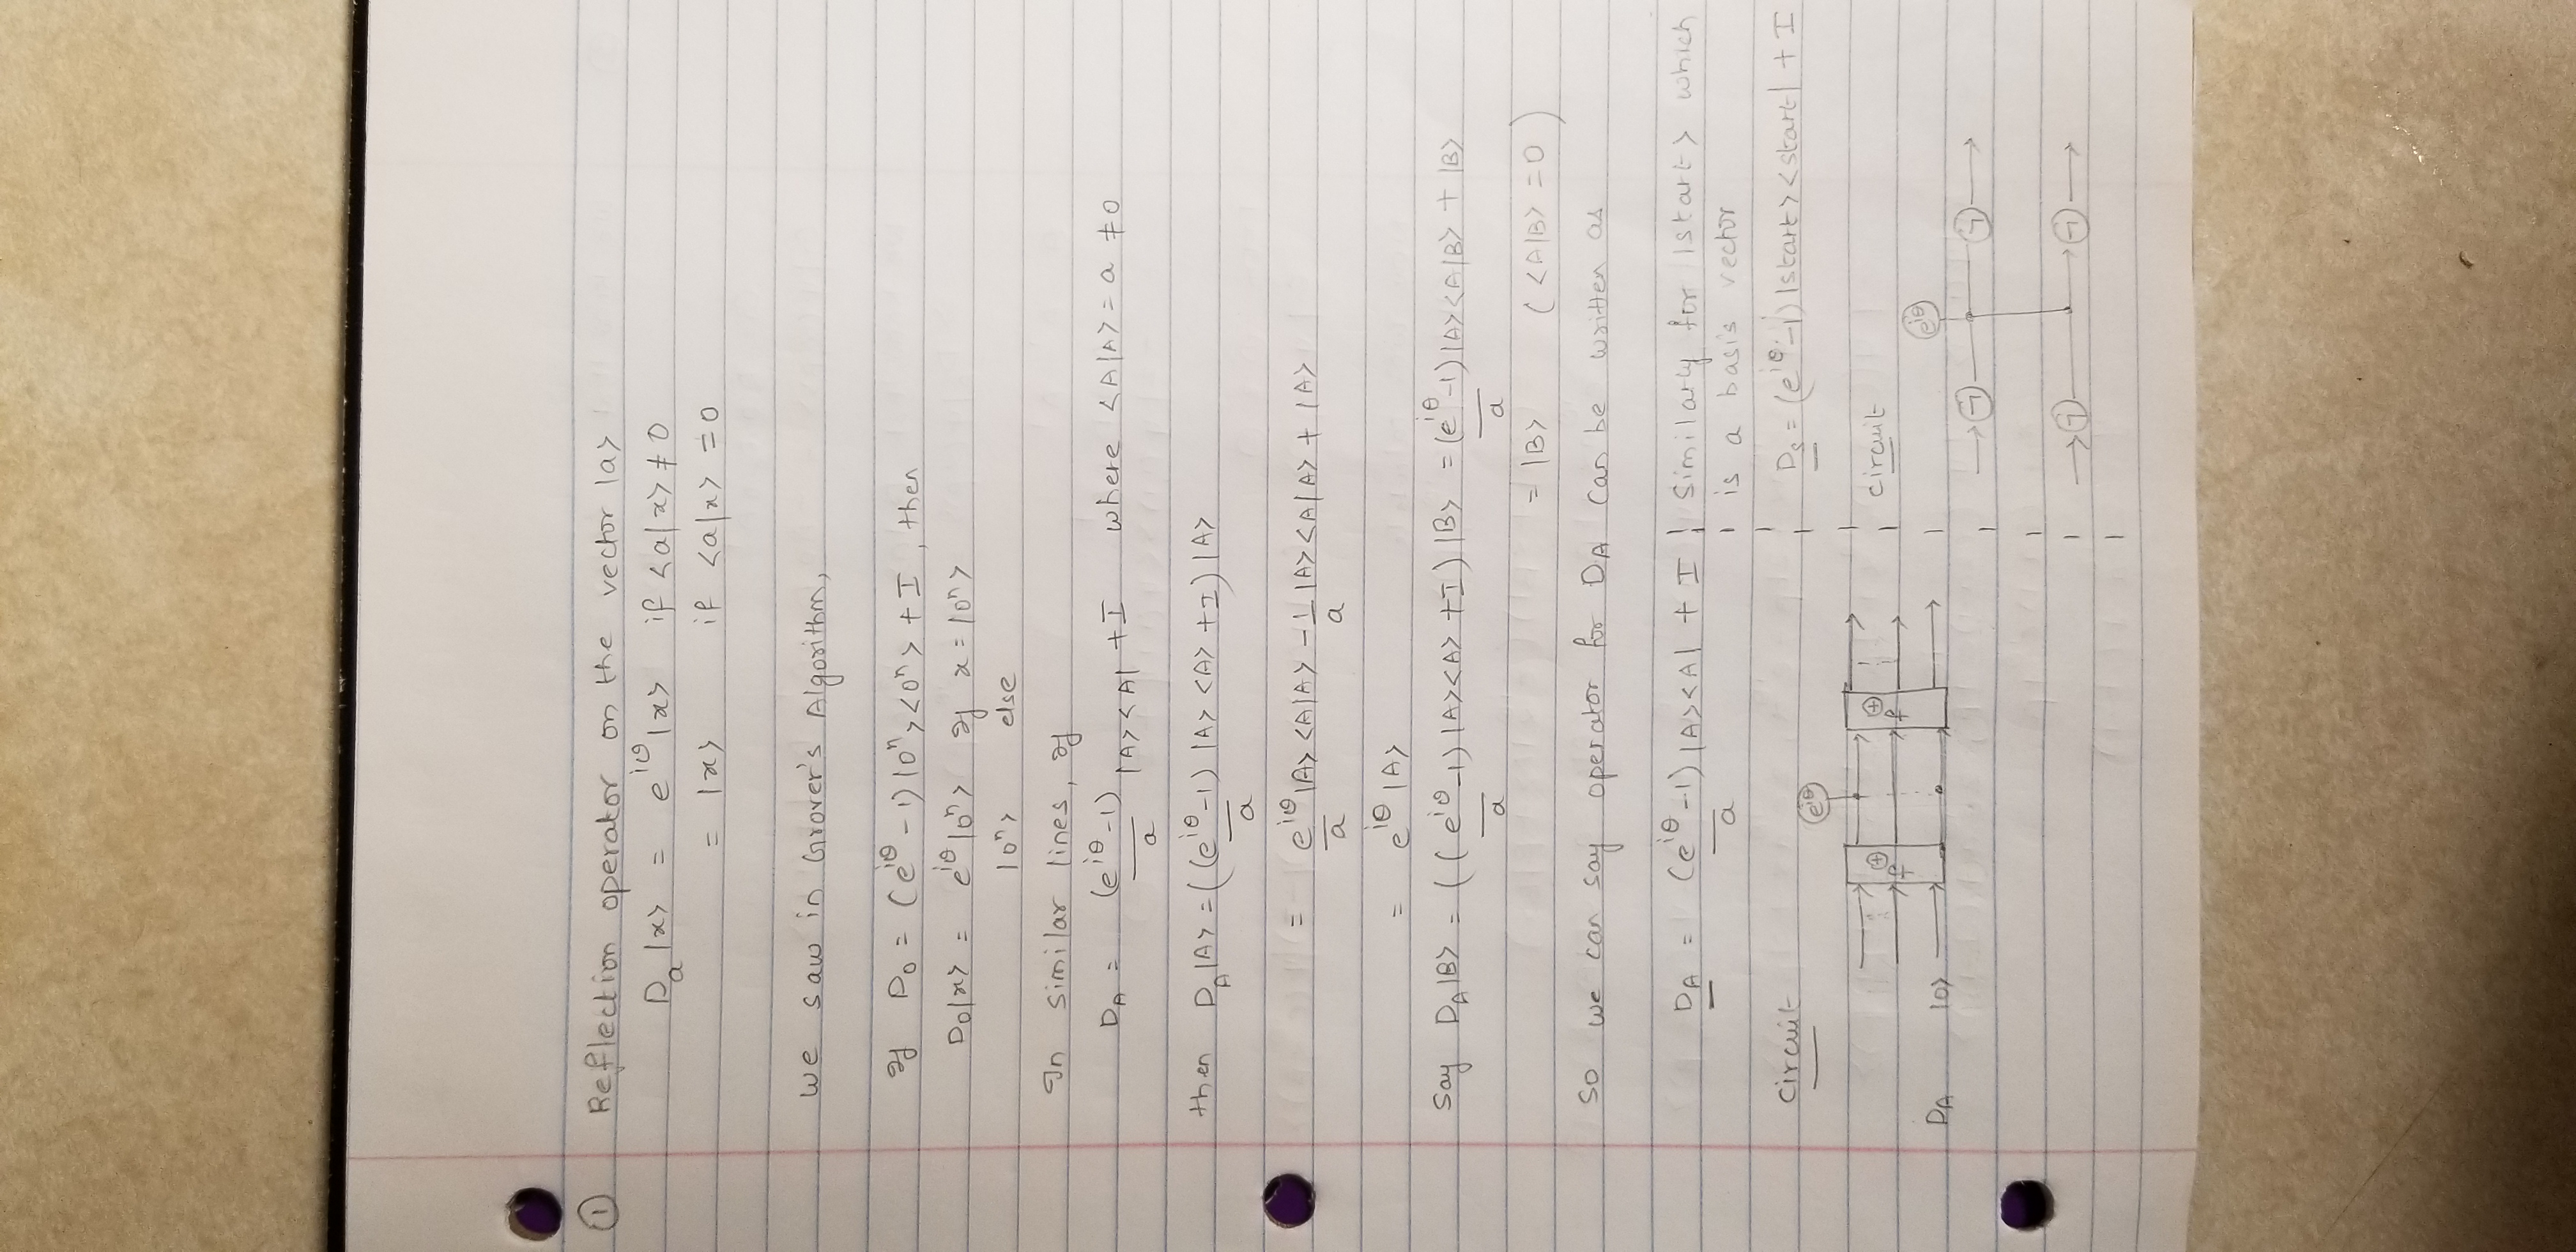 ① Reflection operator on the vector |a>
D_a |x> = e^{iθ} |x> if <a|x> ≠ 0
= |x> if <a|x> = 0
We saw in Grover's Algorithm,
If D_0 = (e^{iθ} - 1) |0^n> <0^n> + I, then
D_0|x> = e^{iθ} |0^n> if x = |0^n>
|0^n> else
In similar lines, if
D_A = (e^{iθ} - 1)/a |A> <A| + I where <A|A> = a ≠ 0
then D_A |A> = ((e^{iθ} - 1)/a |A> <A> + I) |A>
= e^{iθ}/a |A> <A|A> - 1/a |A> <A|A> + |A>
= e^{iθ} |A>
Say D_A |B> = ((e^{iθ} - 1)/a |A> <A> + I) |B> = (e^{iθ} - 1)/a |A> <A|B> + |B>
= |B> (<A|B> = 0)
So we can say operator for D_A can be written as
D_A = (e^{iθ} - 1)/a |A> <A| + I
circuit
e^{iθ}
⊕ ⊕
f f
D_A |0>
Similarly for |start> which
is a basis vector
D_s = (e^{iθ} - 1) |start> <start| + I
circuit
e^{iθ}
¬ ¬
¬ ¬